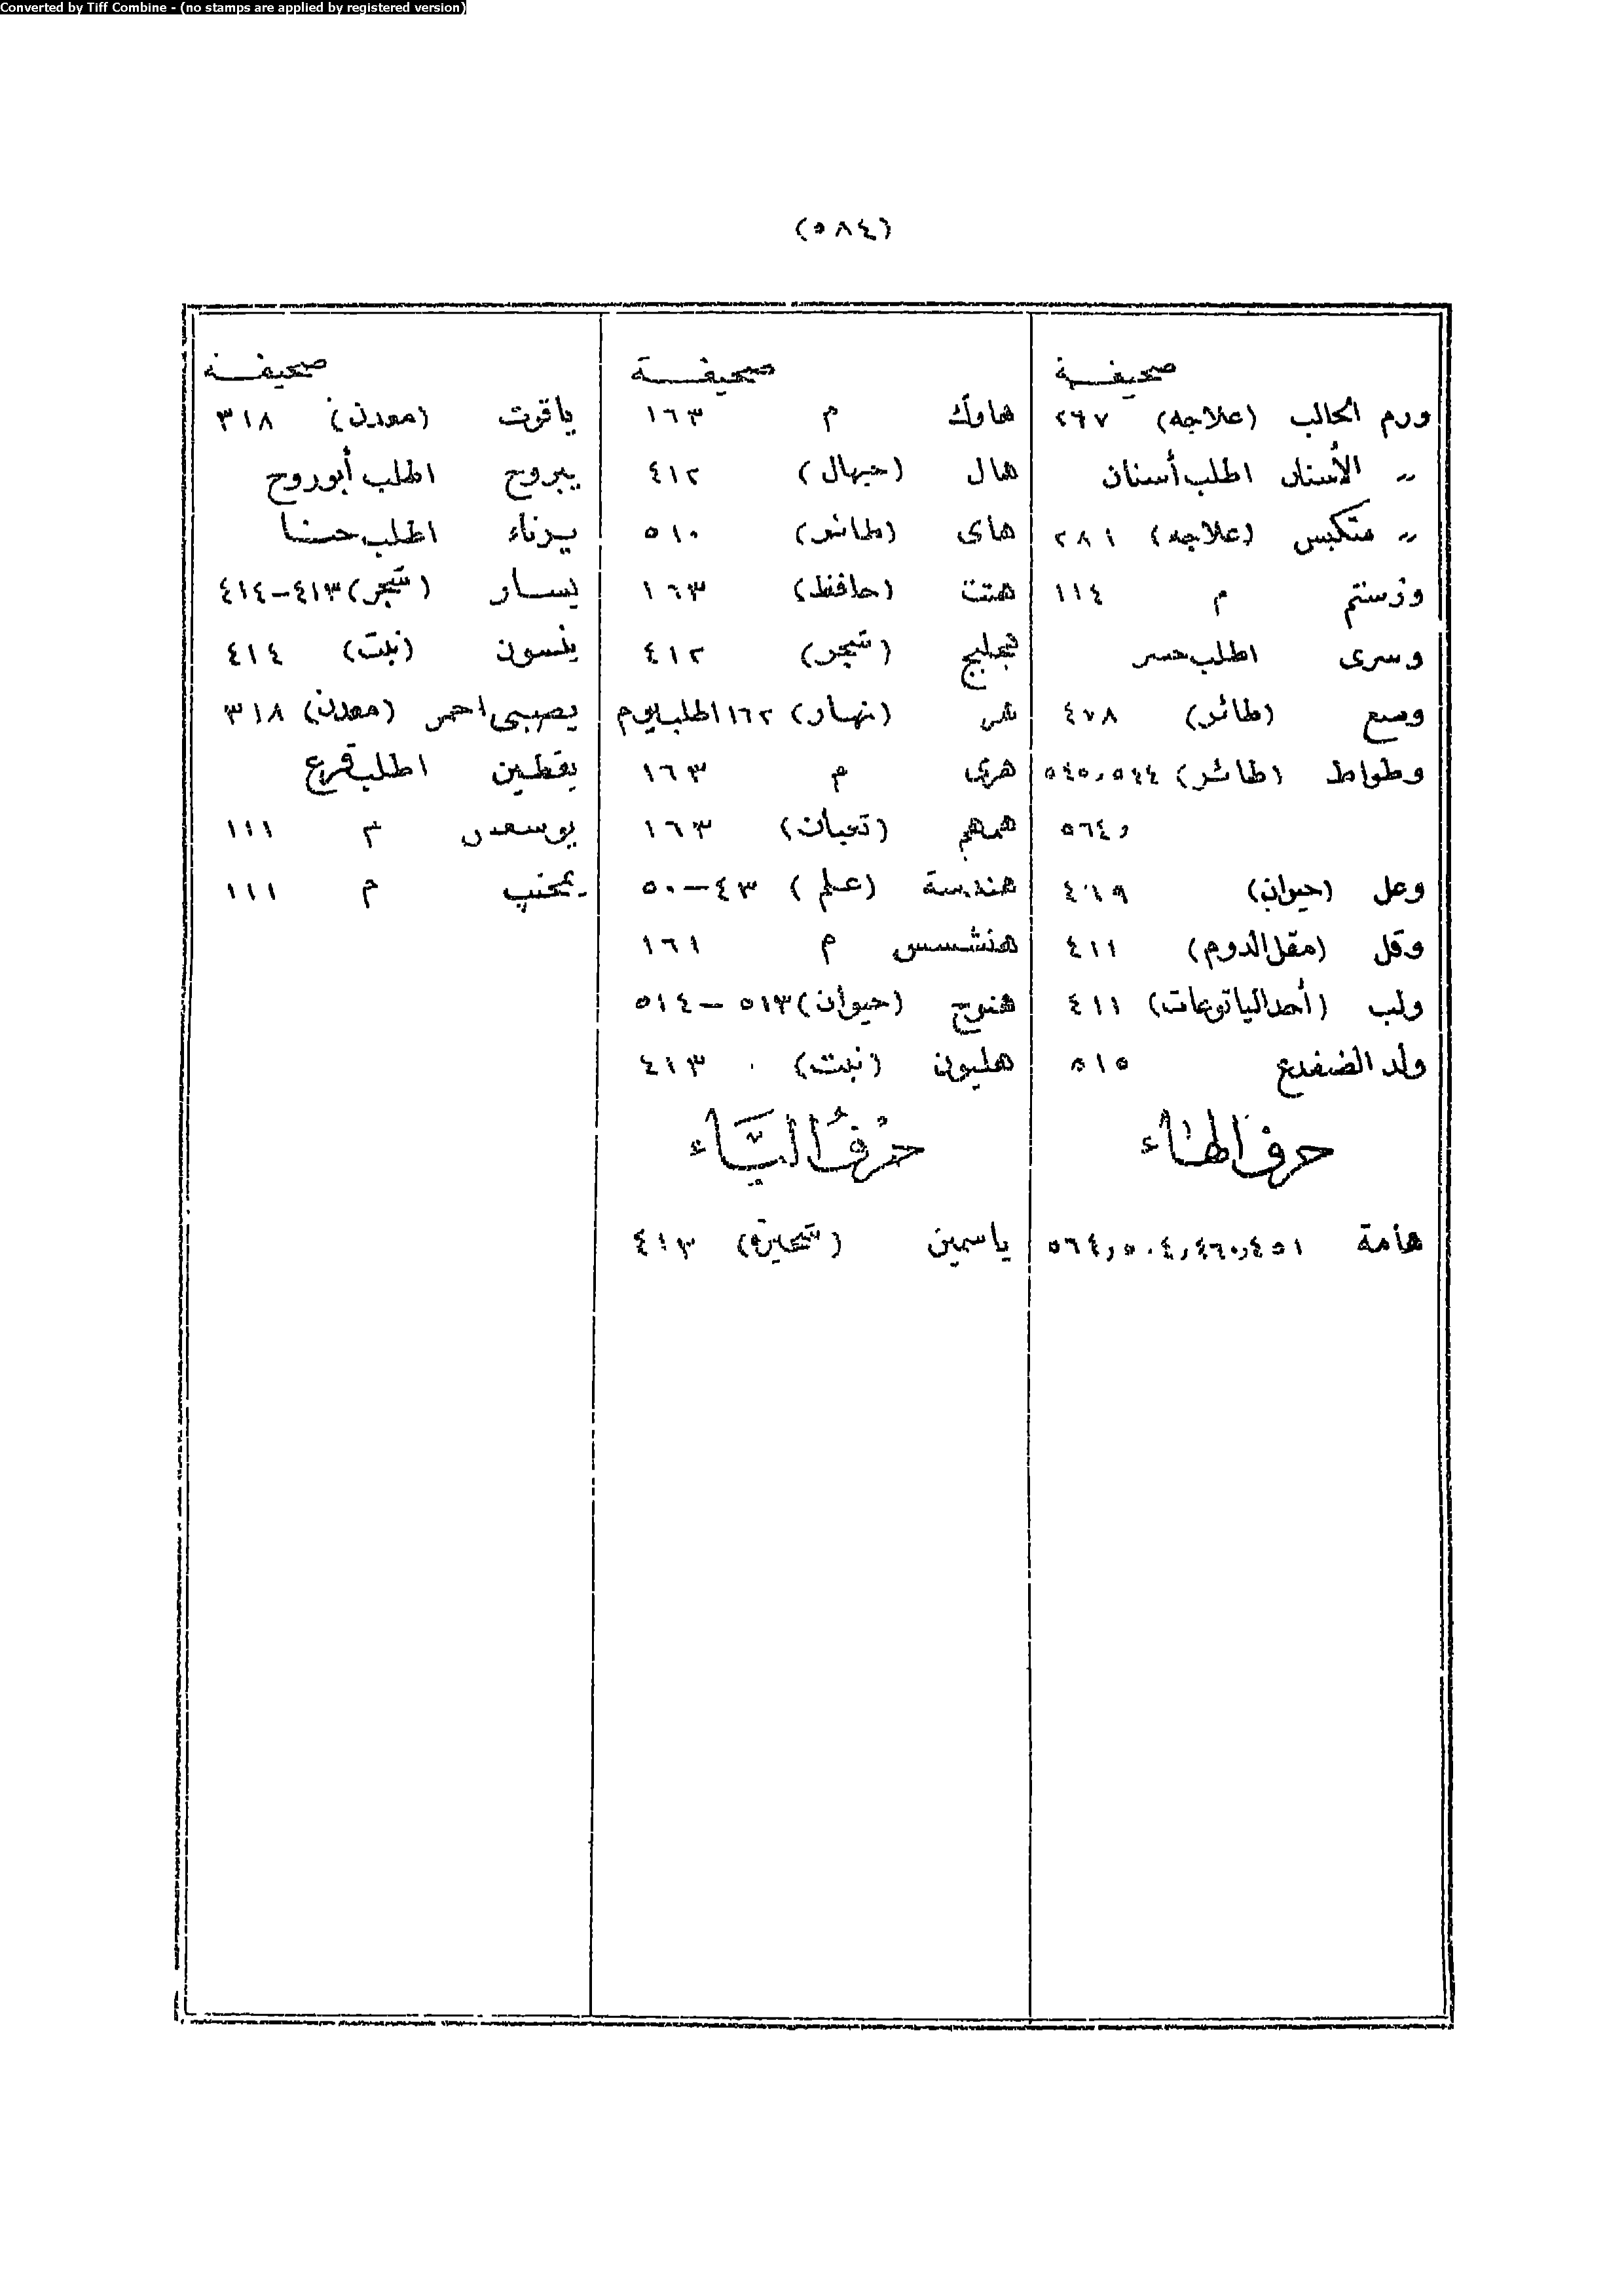 Converted by Tiff Combine - (no stamps are applied by registered version)
(٥٨٤)
صحيفة
ورم الحالب (علاجه) ٢٦٧
〃 الأسنان اطلب أسنان
〃 متكبس (علاجه) ٢٨١
وزستم م ١١٤
وسرى اطلب حسر
وصع (طائر) ٤٧٨
وطواط (طائر) ٥٤٤، ٥٤٥
و ٥٦٤
وعل (حيوان) ٤٦٩
وقل (مقل الدوم) ٤١١
ولب (أحد الياتوعات) ٤١١
ولد الضفدع ٥١٥
حرف الهاء
هامة ٤٥١، ٤٦٠، ٥٠٤، ٥٦٤
صحيفة
هاوك م ١٦٣
هال (حبهال) ٤١٢
هاى (طائر) ٥١٠
هتت (حافظ) ١٦٣
هجليج (شجر) ٤١٢
هر (نهار) ١٦٢ اطلب يوم
هرى م ١٦٣
همهم (تحيات) ١٦٣
هندسة (علم) ٤٣–٥٠
هنشسس م ١٦١
هنوج (حيوان) ٥١٣–٥١٤
هليون (نبت) ٤١٣
حرف الياء
ياسمين (شجيرة) ٤١٣
صحيفة
ياقوت (معدن) ٣١٨
يبروح اطلب أبوروح
يرناء اطلب حنا
يسار (شجر) ٤١٣–٤١٤
ينسون (نبت) ٤١٤
يصبى احمر (معدن) ٣١٨
يقطين اطلب قرع
يوسعدس م ١١١
يمحتب م ١١١